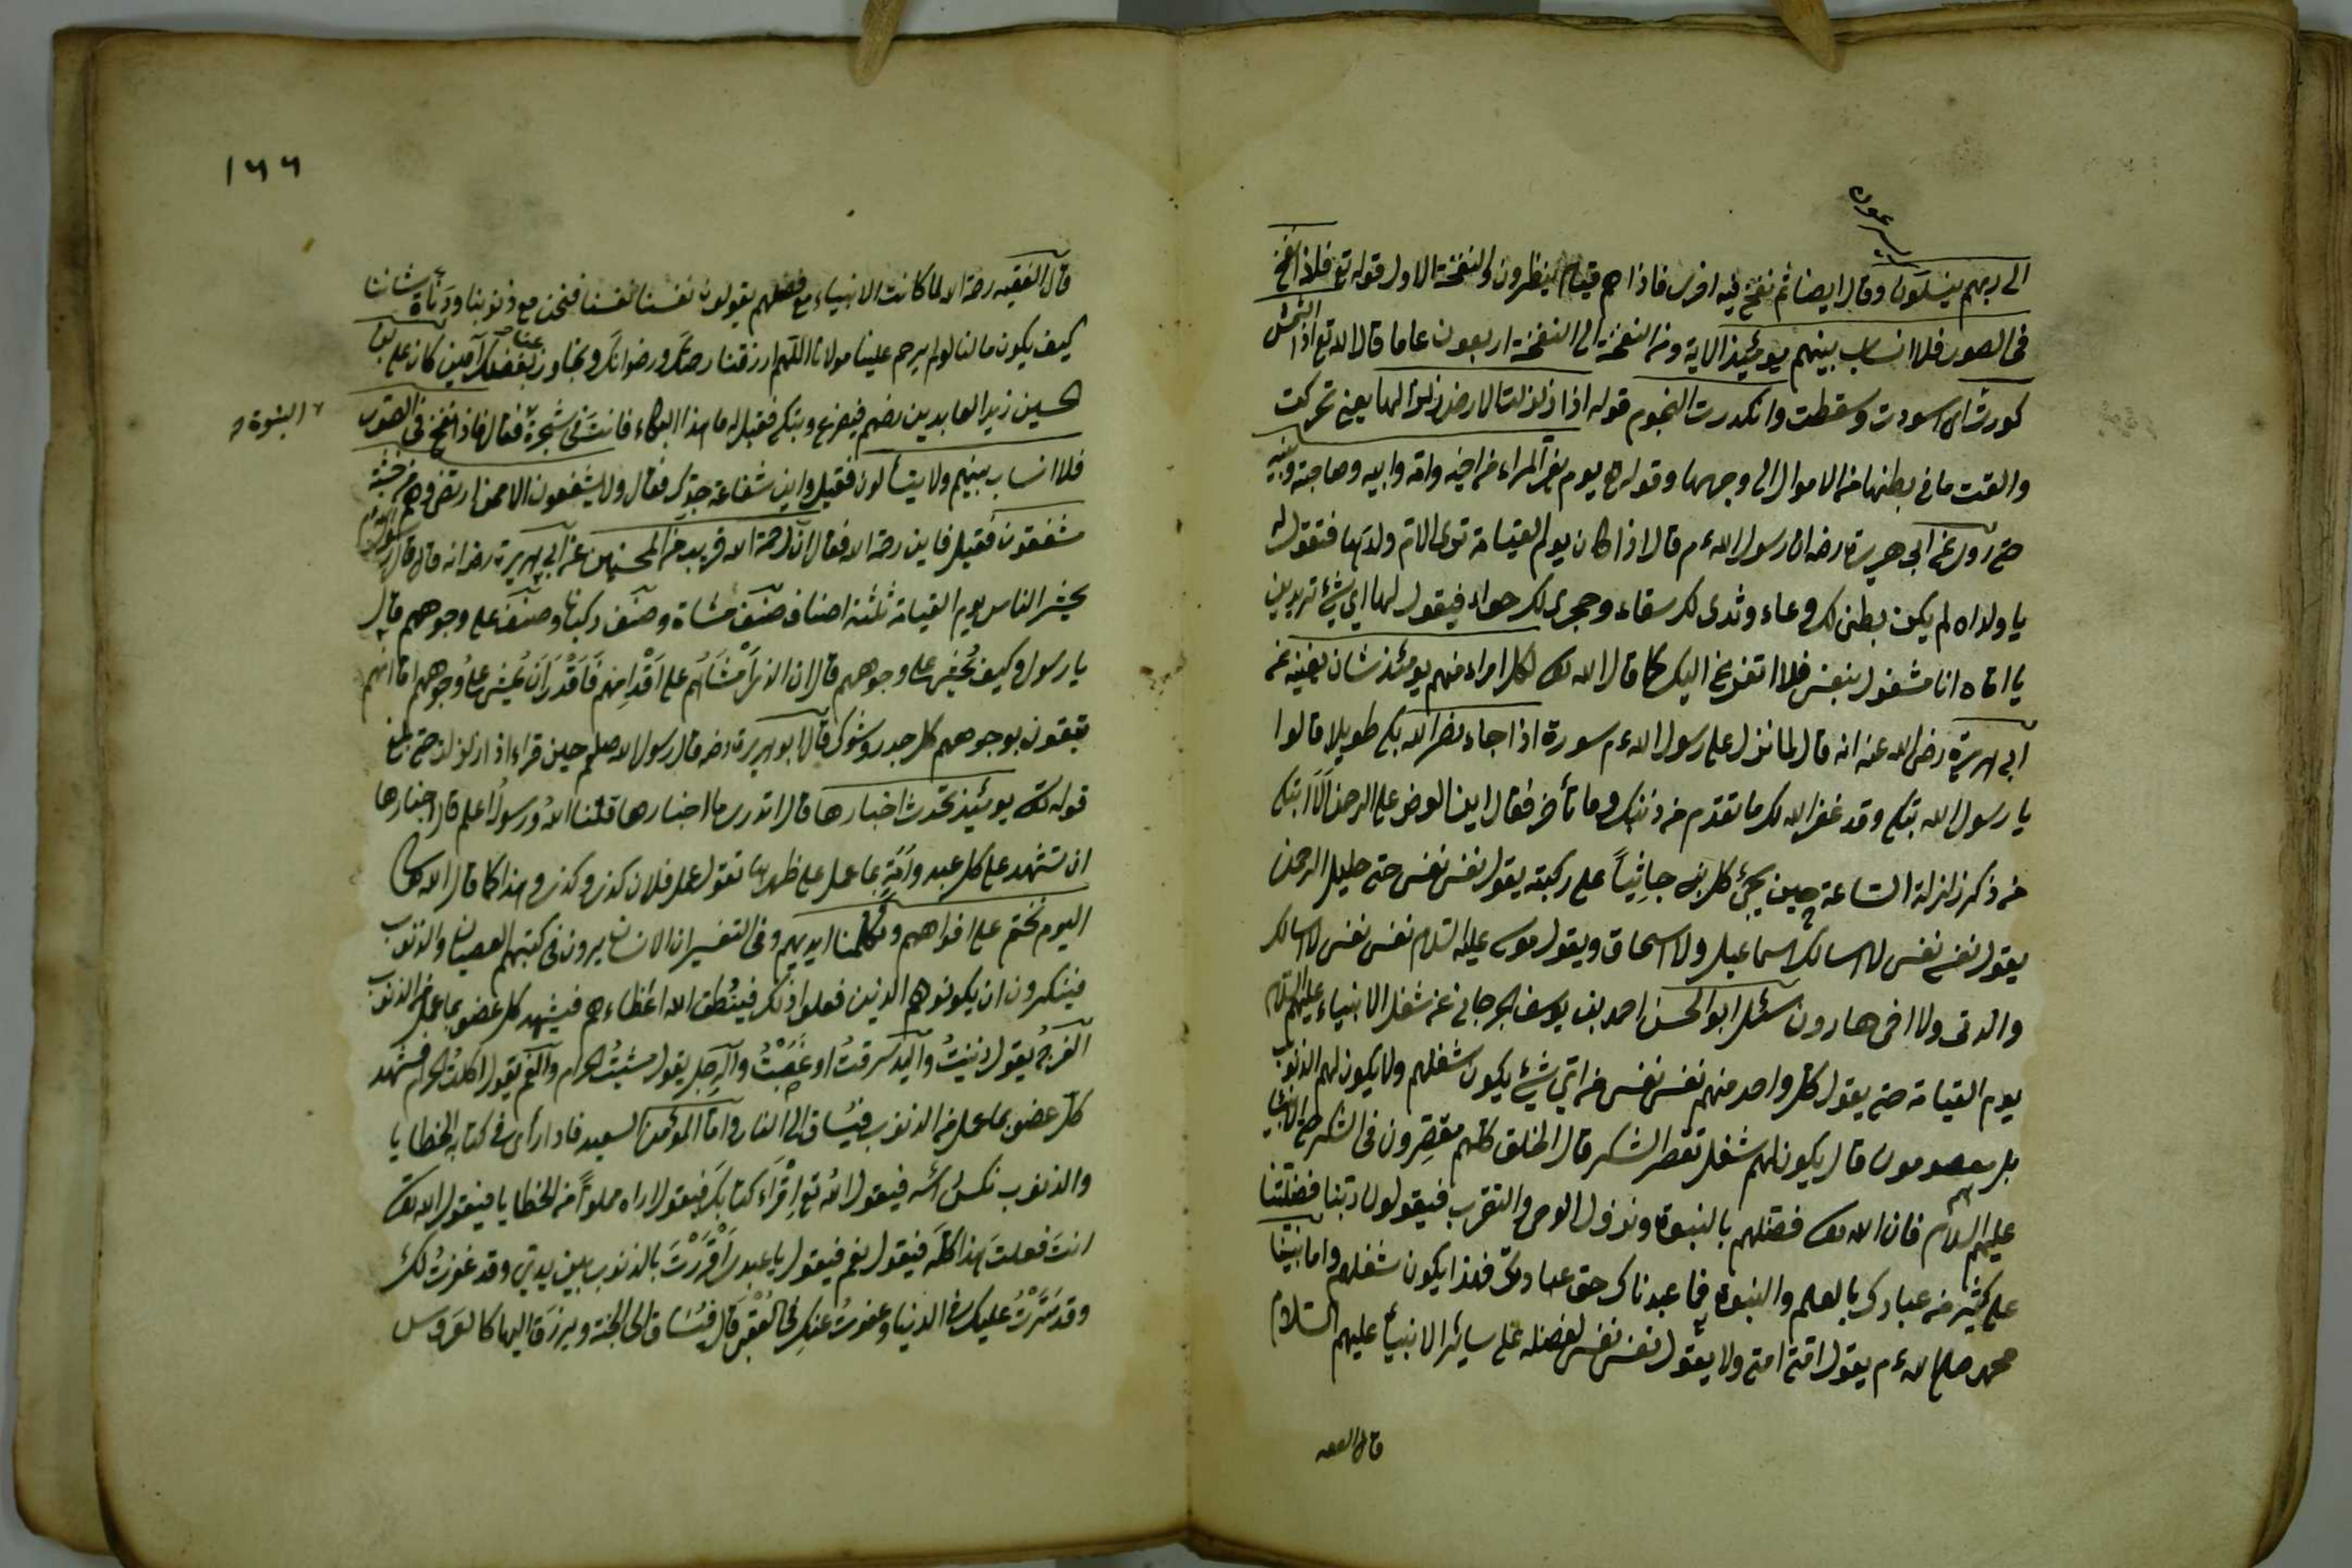 يسرعون
الى ربهم ينسلون وقال ايضا ثم نفخ فيه اخرى فاذا هم قيام ينظرون والنفخة الاولى قوله تع فلذا نفخ
فى الصور فلا انساب بينهم يومئيذ الاية ومن النفخة الى النفخة اربعون عاما قال الله تع اذا الشمش
كورت اى اسودت وسقطت وانكدرت النجوم قوله اذا زلزلت الارض زلزالها يعنى تحركت
والقت ما فى بطنها من الاموال الى وجهها وقوله تع يوم يفر المراء من اخيه وامه وابيه وصاحبته وبنيه
حتى روى عن ابى هريرة رضه ان رسول الله ءم قال اذا كان يوم القيامة توى الام ولدتها فتقول له
يا ولداه لم يكن بطنى لك وعاء وثدى لك سقاء وحجرى لك حواء فيقول لها اي شيئ تريدين
يا اماه انا مشغول بنفسى فلا اتفرغ اليك كما قال الله تعا لكل امراء منهم يومئذ شان يغنيه عن
ابى هريرة رضى الله عنه انه قال لما نزل على رسول الله ءم سورة اذا جاء نصر الله بكى طويلا قالوا
يا رسول الله بتكى وقد غفر الله لك ما تقدم من ذنبك وما تأخر فقال اين العرض على الرحمن الا ابتكى
من ذكر زلزلة الساعة حين يجيئ كل نبى جاثيا على ركبته يقول نفسى نفسى حتى خليل الرحمن
يقول نفسى نفسى لا اسالك اسماعيل ولا اسحاق ويقول موسى عليه السلام نفسى نفسى لا اسالك
والدتى ولا اخى هارون سئل ابو الحسن احمد بن يوسف الجرجانى عن شغل الانبياء عليهم السلام
يوم القيامة حتى يقول كل واحد منهم نفسى نفسى من اتي شيئ يكون شغلهم ولا يكون لهم الذنوب
بل معصومون قال يكون لهم شغل تقصر الشكر قال الخلق كلهم مقصرون فى الشكر حتى الانبياء
عليهم السلام فان الله تعا فضلهم بالنبوة ونزول الوحى والتقرب فيقولون ربنا فضلتنا
على كثير من عبادك بالعلم والنبوة فما عبدناك حق عبادتك فلذا يكون شغلهم واما نبينا
محمد صلى الله ءم يقول امتى امتى ولا يقول نفسى نفسى لفضله على سائر الانبياء عليهم السلام
قال الفقيه
١٦٦
قال الفقيه رحمة الله لما كانت الانبياء مع فضلهم يقولون نفسنا نفسنا فنحن مع ذنوبنا ودنأة شاننا
كيف يكون مالنا لو لم يرحم علينا مولانا اللهم ارزقنا رحمتك ورضوانك وتجاوز عنا بفضلك آمين كان على بن
الحسين زين العابدين رضهم فيضرع ويتكى فقيل له ما هذا البكاء فانت فى شجرة فقال فاذا نفخ فى الصور
النبوة
فلا انساب بينهم ولا يتسألون فقيل واين شفاعة جدك فقال ولا يشفعون الا لمن ارتضى وهم من خشيته
مشفقون فقيل فاين رحمة الله فقال ان رحمة الله قريب من المحسنين عن ابى هريرة رضه انه قال قال رسول الله ءم
يحشر الناس يوم القيامة ثلثة اصناف صنف مشاة وصنف ركبانا وصنف على وجوههم قال
يا رسول وكيف يمشى على وجوههم قال ان الذى امشاهم على اقدامهم قادر ان يمشى على وجوههم اما انهم
يتقون بوجوههم كل جدر وشوك قال ابو هريرة رضه قال رسول الله صلعم حين قراء اذا زلزلت حتى بلغ
قوله تعا يومئيذ تحدث اخبارها قال اتدرى ما اخبارها قلنا الله ورسوله اعلم قال اخبارها
ان تشهد على كل عبد وامة بما عمل على ظهرها تقول عمل فلان كذى وكذى وهذا كما قال الله تعا
اليوم نختم على افواههم وتكلمنا ايديهم وفى التفسير ان الانسان يرون فى كتبهم العصيان والذنوب
فينكرون ان يكونوهم الذين فعلوا ذلك فينطق الله اعظاءهم فيشهد كل عضو بما عمل من الذنوب
الفرج يقول زنيت واليد سرقت او غصبت والرجل يقول مشيت الحرام والفم يقول اكلت الحرام فشهد
كل عضو بما عمل من الذنوب فيساق الى النار واما المؤمن السعيد فاذا رأى فى كتابه الخطايا
والذنوب نكس رأسه فيقول الله تع اقراء كتابك فيقول اراه مملوأ من الخطايا فيقول الله تعا
انت فعلت هذا كله فيقول نعم فيقول يا عبدى اقررت بالذنوب بين يدي وقد غفرت لك
وقد سترت عليك فى الدنيا وعفوت عنك فى العقبى قال فيساق الى الجنة ويرزق اليها كالعروس